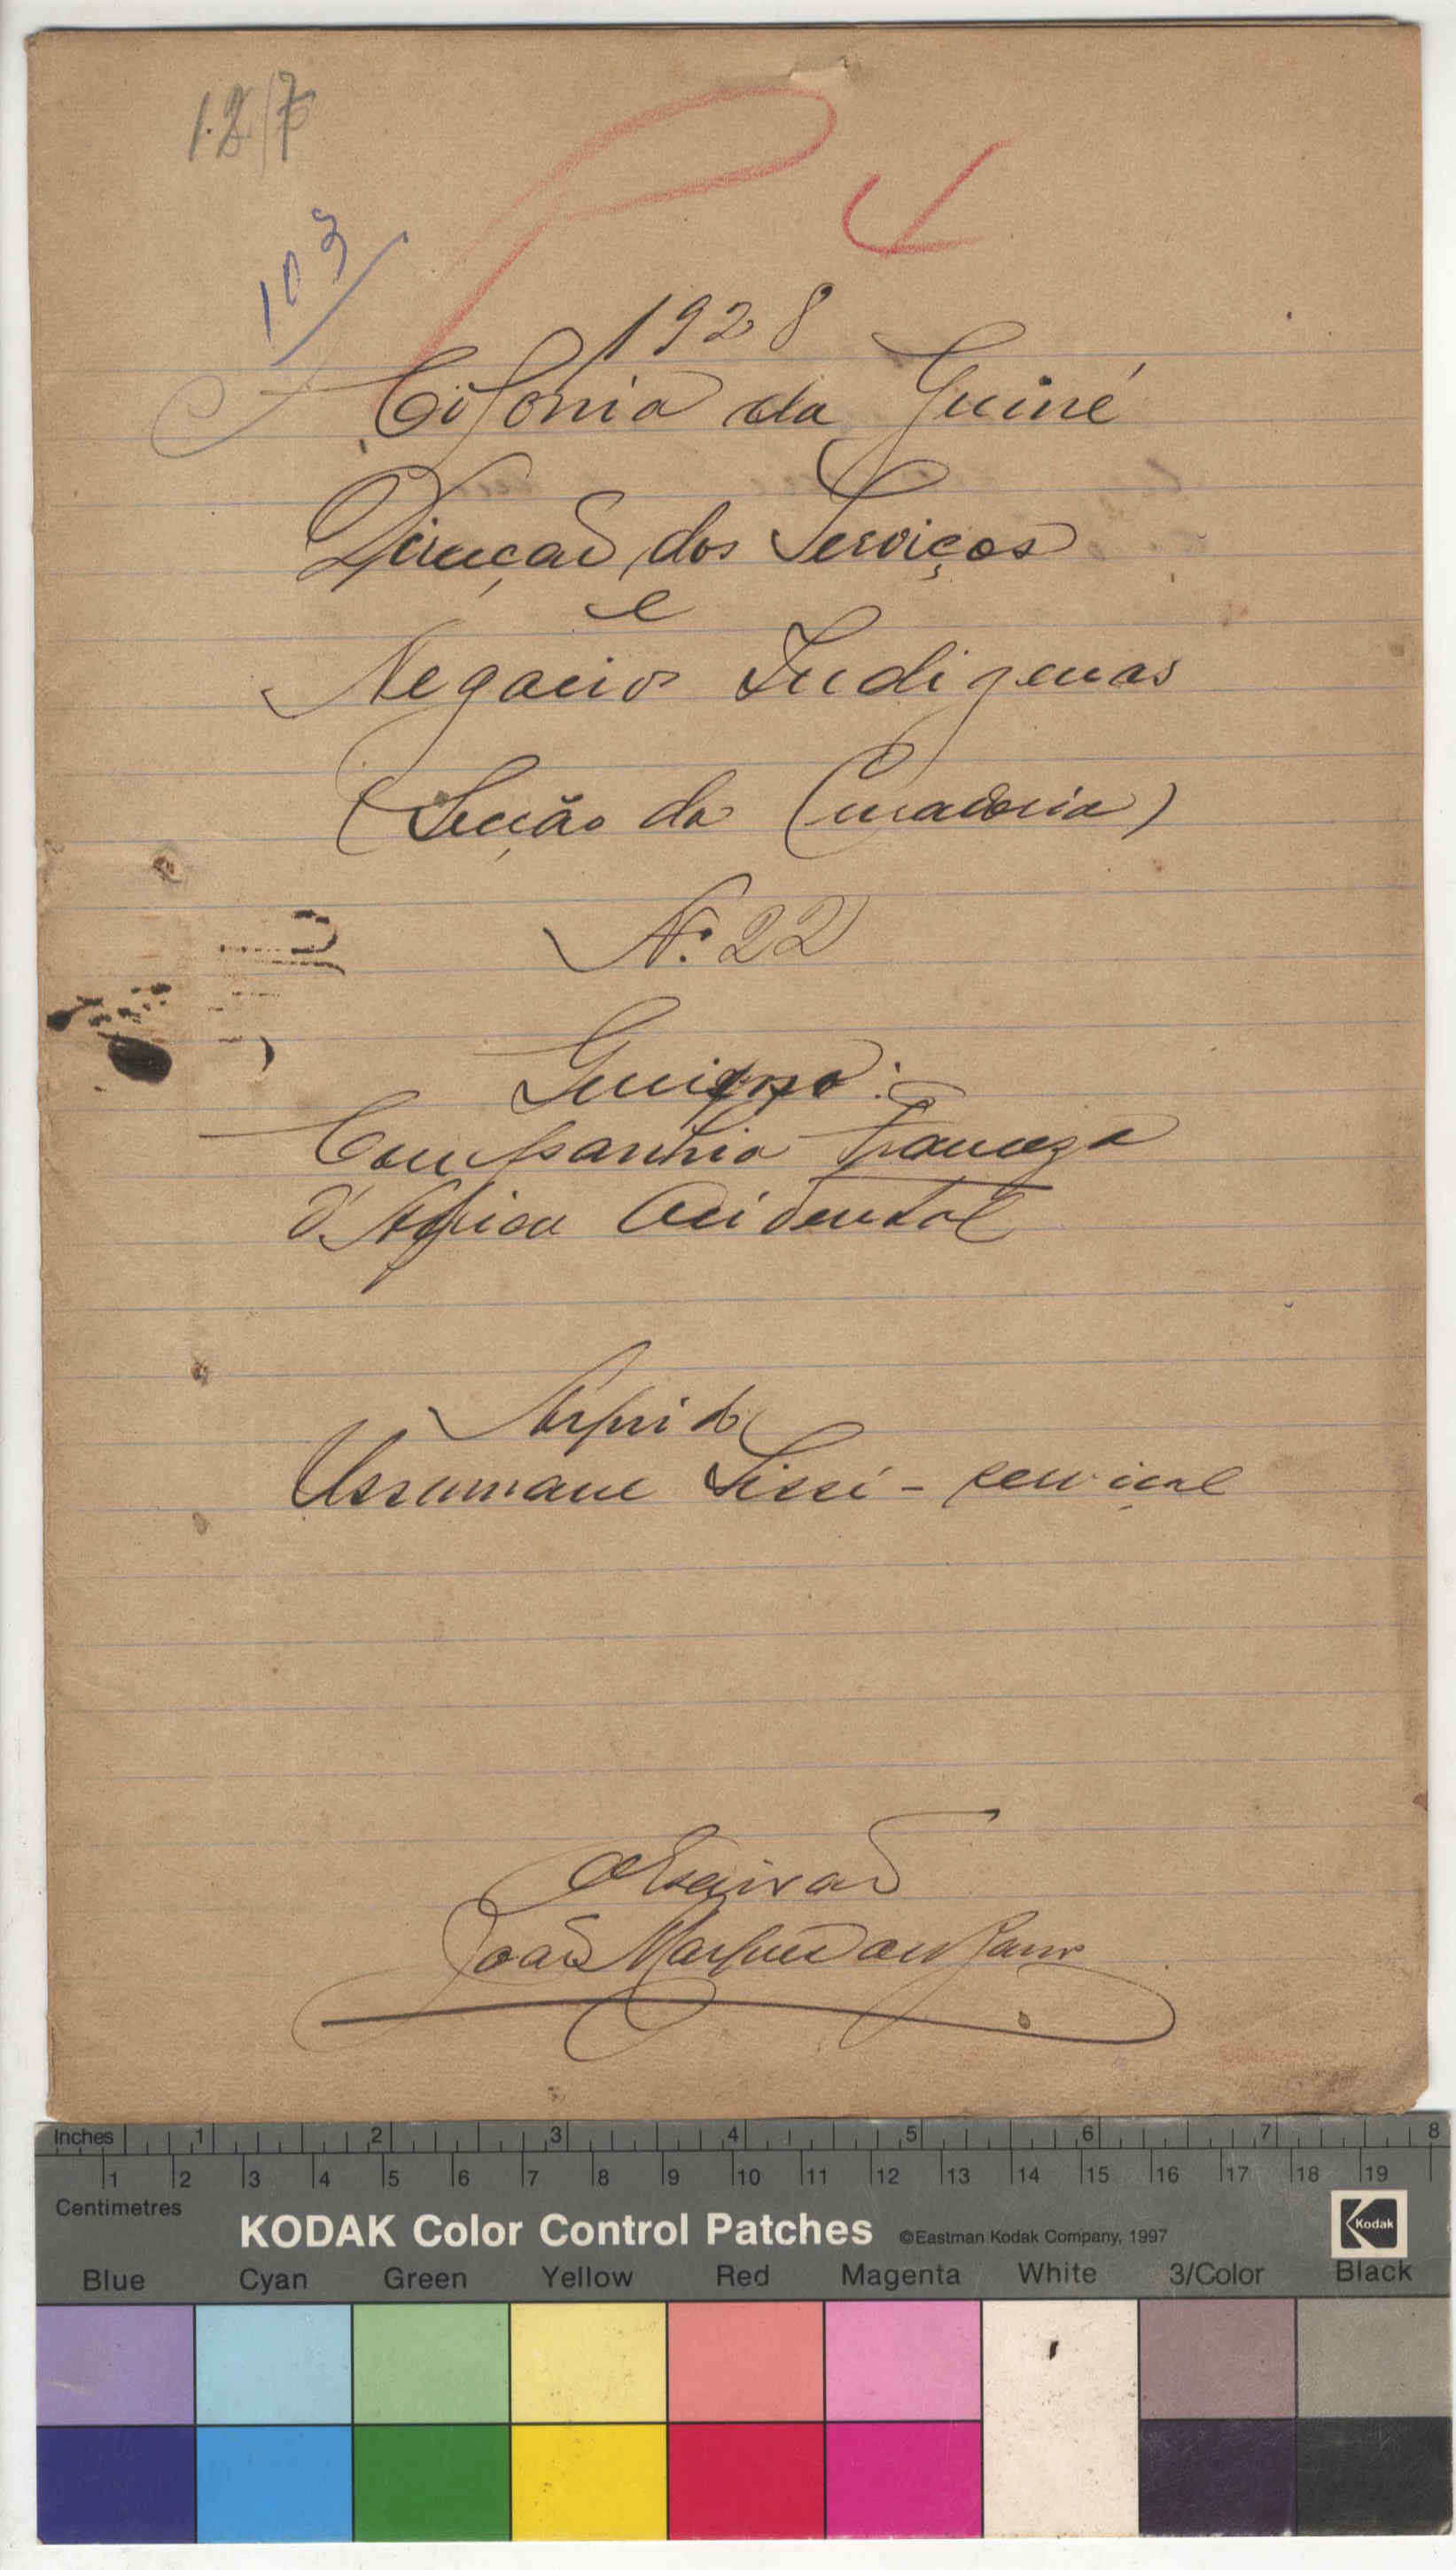 103
1928
Colonia da Guiné
Direcção dos Serviços
e
Negocios Indigenas
(Secção da Curadoria)
N.º 22
Queixoso:
Companhia Franceza
d'Africa Ocidental
Arguido
Ussumane Sissi - serviçal
O Escrivão
João
Inches 1 2 3 4 5 6 7 8
1 2 3 4 5 6 7 8 9 10 11 12 13 14 15 16 17 18 19
Centimetres
KODAK Color Control Patches ©Eastman Kodak Company, 1997 Kodak
Blue Cyan Green Yellow Red Magenta White 3/Color Black